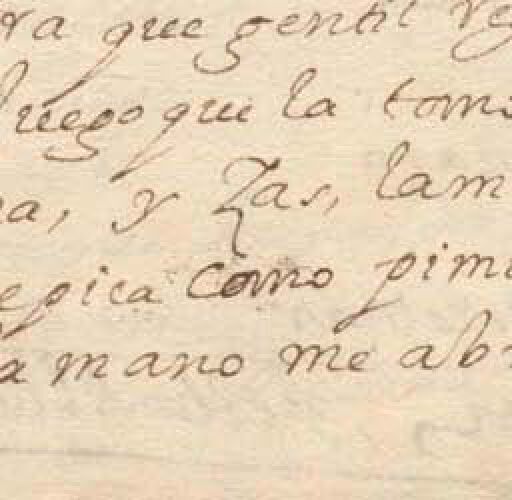 ra que gentil re
luego que la tomo
na, y Zas, lam
epica como pimi
a mano me abr